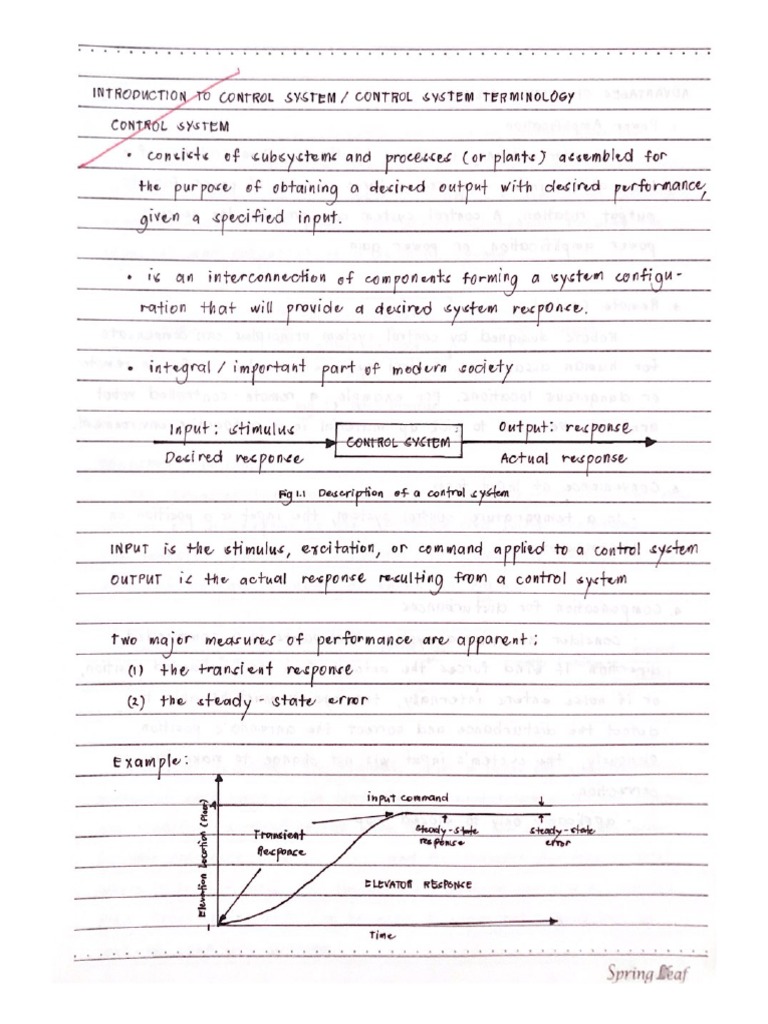 INTRODUCTION TO CONTROL SYSTEM / CONTROL SYSTEM TERMINOLOGY
CONTROL SYSTEM
• consists of subsystems and processes (or plants) assembled for
the purpose of obtaining a desired output with desired performance,
given a specified input.
• is an interconnection of components forming a system configu-
ration that will provide a desired system response.
• integral / important part of modern society
Input: stimulus
Desired response
CONTROL SYSTEM
Output: response
Actual response
Fig 1.1 Description of a control system
INPUT is the stimulus, excitation, or command applied to a control system
OUTPUT is the actual response resulting from a control system
Two major measures of performance are apparent:
(1) the transient response
(2) the steady-state error
Example:
Elevation Location (Floor)
4
1
input command
Transient
Response
steady-state
response
steady-state
error
ELEVATOR RESPONSE
Time
Spring Leaf